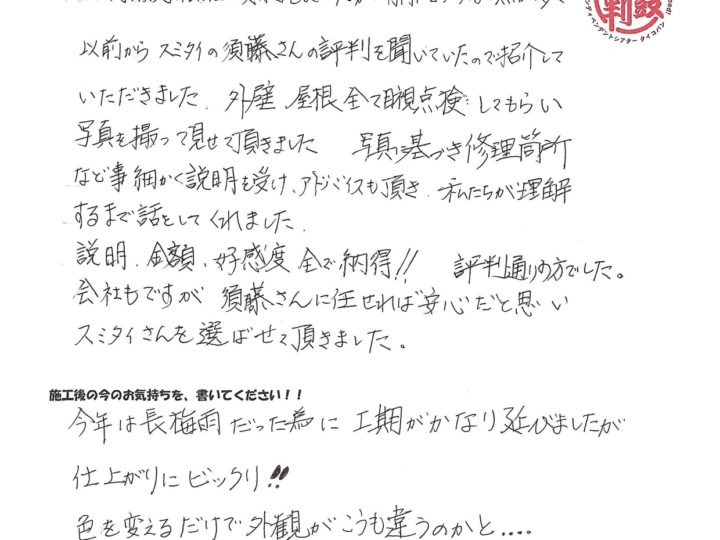 以前から スミタイの須藤さんの評判を聞いていたので紹介して
いただきました、外壁 屋根 全て目視点検 してもらい
写真を撮って見せて頂きました 写真に基づき修理箇所
など事細かく説明を受け、アドバイスも頂き、私たちが理解
するまで話をしてくれました、
説明、金額、好感度 全て納得!! 評判通りの方でした。
会社もですが 須藤さんに任せれば安心だと思い
スミタイさんを選ばせて頂きました。
施工後の今のお気持ちを、書いてください!!
今年は長梅雨だった為に 工期がかなり延びましたが
仕上がりにビックリ!!
色を変えるだけで外観がこうも違うのかと....